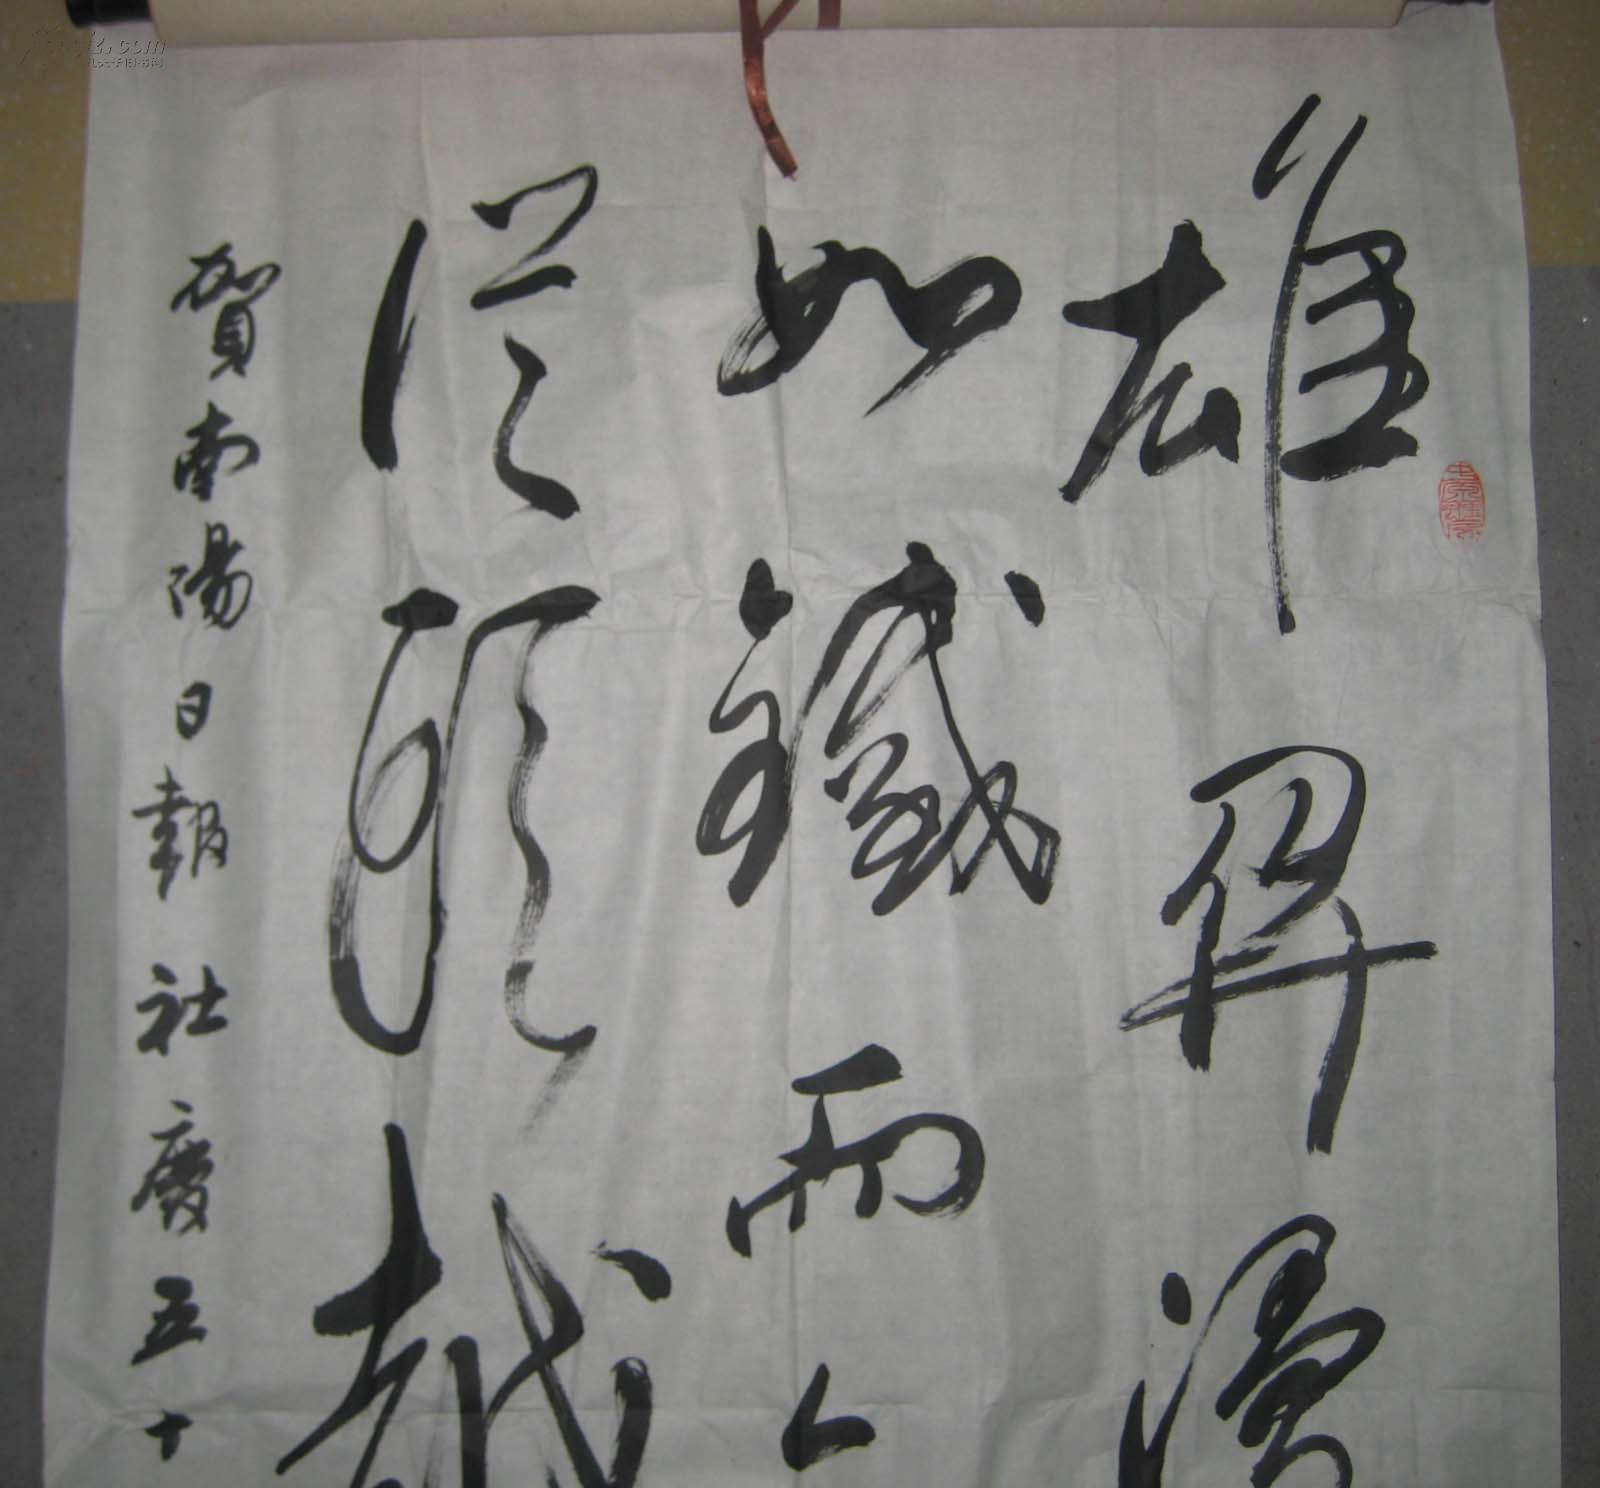 雄關漫
如鐵而今
從頭越
賀南陽日報社慶五十